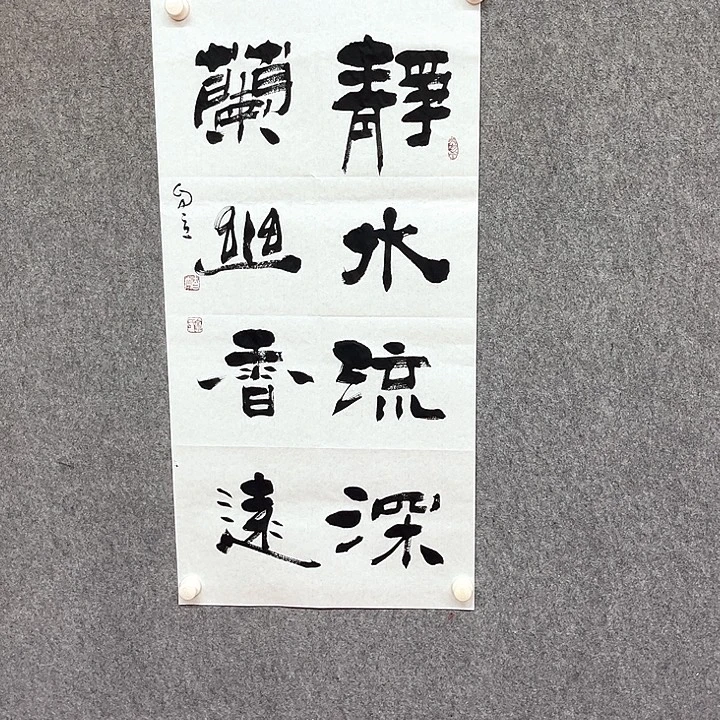 靜水流深
蘭幽香遠